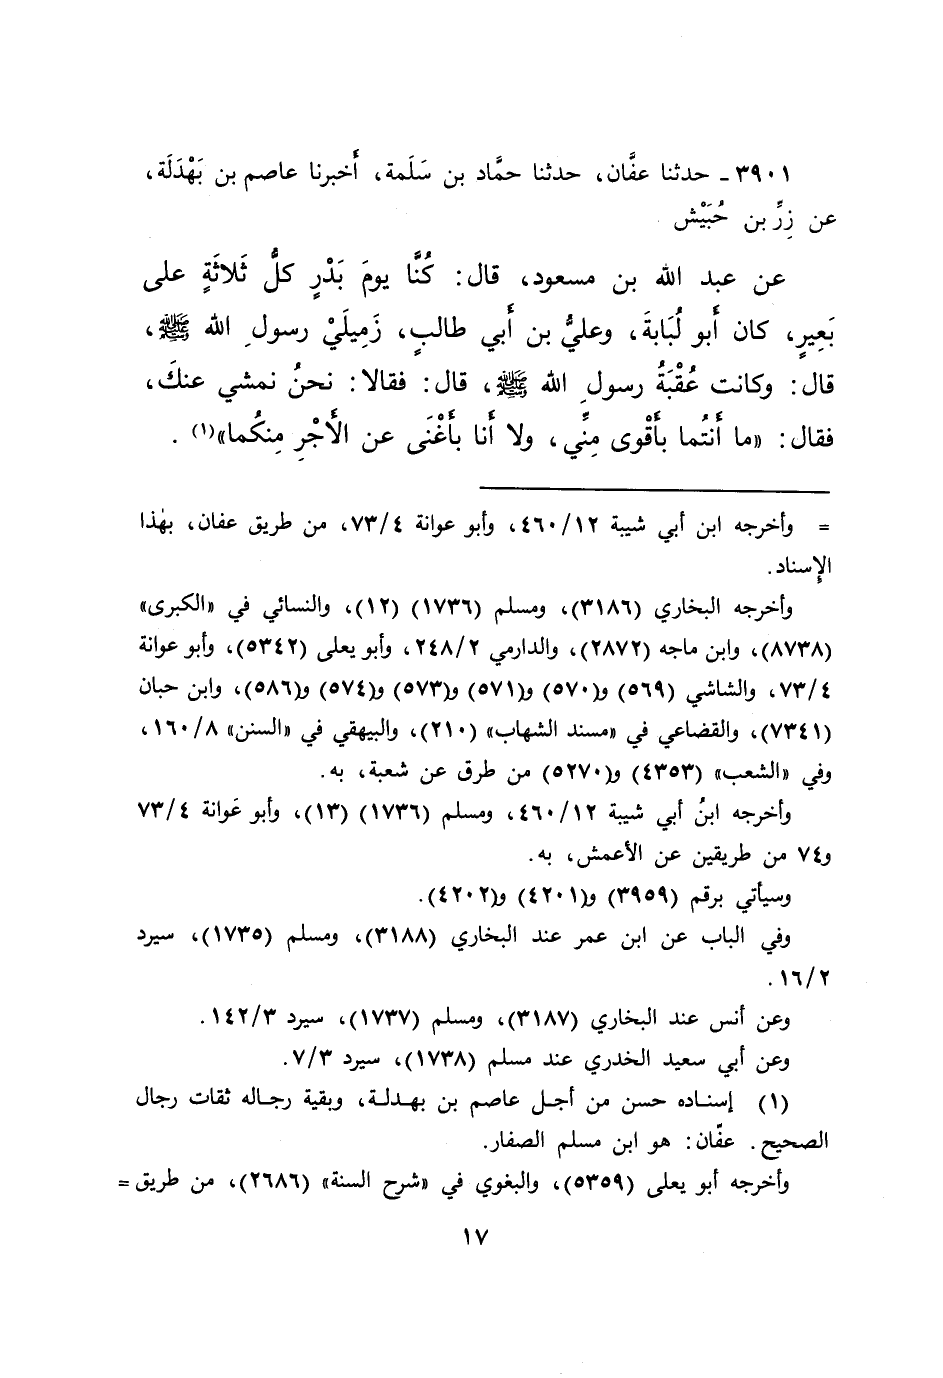 ٣٩٠١ـ حدثنا عفَّان، حدثنا حمَّاد بن سَلَمة، أَخبرنا عاصم بن بَهْدَلَة،
عن زِرِّ بن حُبَيْش
عن عبد الله بن مسعود، قال: كُنَّا يومَ بَدْرٍ كلُّ ثَلاثَةٍ على
بَعِيرٍ، كان أَبو لُبَابةَ، وعليُّ بن أَبي طالبٍ، زَمِيلَيْ رسولِ الله ﷺ،
قال: وكانت عُقْبَةُ رسولِ الله ﷺ، قال: فقالا: نحنُ نمشي عنكَ،
فقال: «ما أَنتُما بأَقْوى مِنِّي، ولا أَنا بأَغْنَى عن الأَجْرِ مِنكُما»(١).
= وأخرجه ابن أبي شيبة ٤٦٠/١٢، وأبو عوانة ٧٣/٤، من طريق عفان، بهٰذا
الإِسناد.
وأخرجه البخاري (٣١٨٦)، ومسلم (١٧٣٦) (١٢)، والنسائي في «الكبرى»
(٨٧٣٨)، وابن ماجه (٢٨٧٢)، والدارمي ٢٤٨/٢، وأبو يعلى (٥٣٤٢)، وأبو عوانة
٧٣/٤، والشاشي (٥٦٩) و(٥٧٠) و(٥٧١) و(٥٧٣) و(٥٧٤) و(٥٨٦)، وابن حبان
(٧٣٤١)، والقضاعي في «مسند الشهاب» (٢١٠)، والبيهقي في «السنن» ١٦٠/٨،
وفي «الشعب» (٤٣٥٣) و(٥٢٧٠) من طرق عن شعبة، به.
وأخرجه ابنُ أبي شيبة ٤٦٠/١٢، ومسلم (١٧٣٦) (١٣)، وأبو عَوانة ٧٣/٤
و٧٤ من طريقين عن الأعمش، به.
وسيأتي برقم (٣٩٥٩) و(٤٢٠١) و(٤٢٠٢).
وفي الباب عن ابن عمر عند البخاري (٣١٨٨)، ومسلم (١٧٣٥)، سيرد
١٦/٢.
وعن أنس عند البخاري (٣١٨٧)، ومسلم (١٧٣٧)، سيرد ١٤٢/٣.
وعن أبي سعيد الخدري عند مسلم (١٧٣٨)، سيرد ٧/٣.
(١) إسناده حسن من أجل عاصم بن بهدلة، وبقية رجاله ثقات رجال
الصحيح. عفّان: هو ابن مسلم الصفار.
وأخرجه أبو يعلى (٥٣٥٩)، والبغوي في «شرح السنة» (٢٦٨٦)، من طريق =
١٧